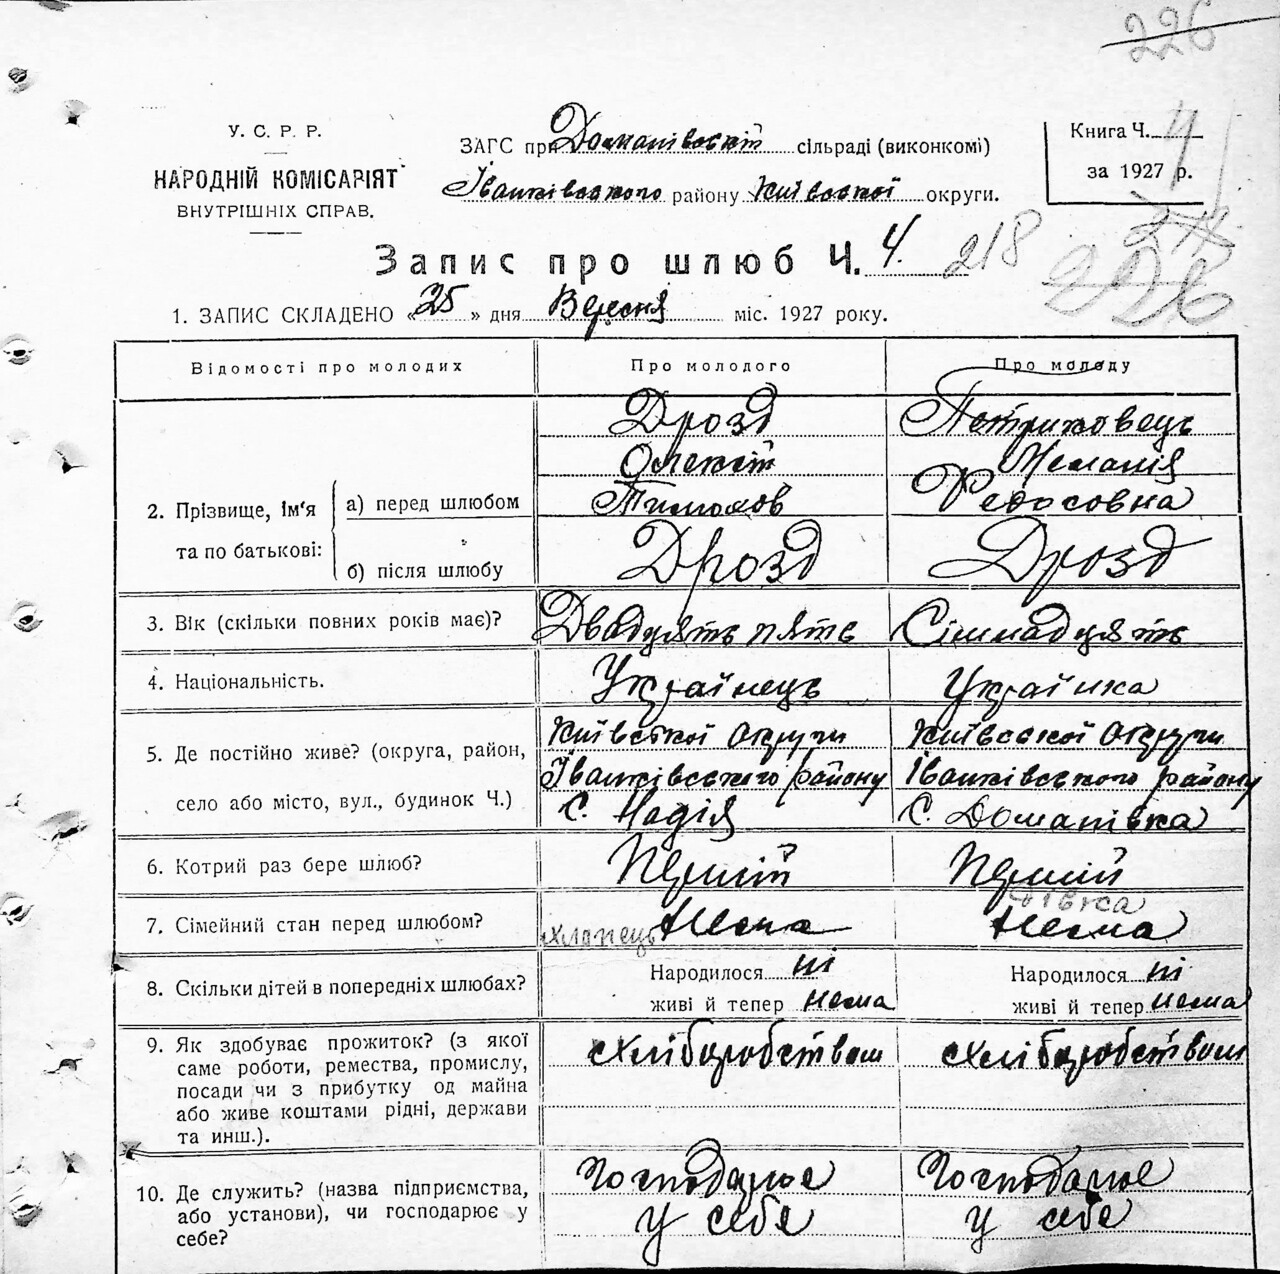 226
У. С. Р. Р.
НАРОДНІЙ КОМІСАРІЯТ
ВНУТРІШНІХ СПРАВ.
ЗАГС при Доманівській сільраді (виконкомі)
Іванківського району Київської округи.
Книга Ч. 4
за 1927 р.
Запис про шлюб Ч. 4. 218
226
1. ЗАПИС СКЛАДЕНО «25» дня Вересня міс. 1927 року.
Відомості про молодих
Про молодого
Про молоду
2. Прізвище, ім'я
та по батькові:
а) перед шлюбом
Дрозд
Олексій
Тимохов
Петриковець
Меланія
Федосовна
б) після шлюбу
Дрозд
Дрозд
3. Вік (скільки повних років має)?
Двадцять пять
Сімнадцять
4. Національність.
Українець
Українка
5. Де постійно живе? (округа, район,
село або місто, вул., будинок Ч.)
Київської округи
Іванківського району
С. Надія
Київської округи
Іванківського району
С. Доманівка
6. Котрий раз бере шлюб?
Перший
Перший
7. Сімейний стан перед шлюбом?
хлопець Нема
дівка
Нема
8. Скільки дітей в попередніх шлюбах?
Народилося ні
живі й тепер нема
Народилося ні
живі й тепер нема
9. Як здобуває прожиток? (з якої
саме роботи, ремества, промислу,
посади чи з прибутку од майна
або живе коштами рідні, держави
та инш.).
хліборобством
хліборобством
10. Де служить? (назва підприємства,
або установи), чи господарює у
себе?
Господарює
у себе
Господарює
у себе